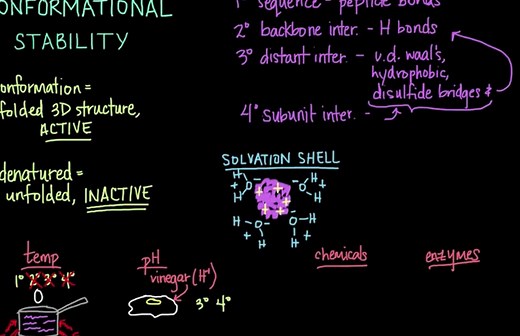 ONFORMATIONAL
STABILITY
1° sequence - peptide bonds
2° backbone inter. - H bonds
3° distant inter. - v.d. waal's,
hydrophobic,
disulfide bridges &
4° subunit inter. -
onformation =
folded 3D structure,
ACTIVE
denatured =
unfolded, INACTIVE
SOLVATION SHELL
H O H
+ - - +
H H
+ + + +
H O O H
- -
H H
+ +
temp
1° 2° 3° 4°
pH
vinegar (H+)
3° 4°
chemicals
enzymes